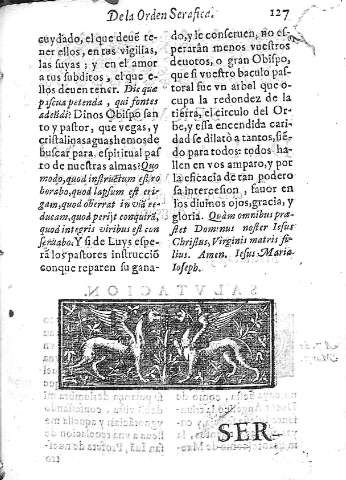 De la Orden Serafica.
127
cuydado, el que deuẽ te-
ner ellos, en tus vigilias,
las suyas; y en el amor
a tus subditos, el que e-
llos deuen tener. Dic quę
pascua petenda, qui fontes
adeũdi: Dinos Obispo san
to y pastor, que vegas, y
cristalinas aguas hemos de
buscar para espiritual pas
to de nuestras almas: Quo
modo, quod infirmum est ro
borabo, quod lapsum est eri-
gam, quod oberrat in viã re-
ducam, quod perijt conquirã,
quod integris viribus est con
seruabo. Y si de Luys espe-
rã los pastores instrucciõ
con que reparen su gana-
do, y le conseruen, no es-
perarán menos vuestros
deuotos, o gran Obispo,
que si vuestro baculo pas-
toral fue vn arbel que o-
cupa la redondez de la
tierra, el circulo del Or-
be, y essa encendida cari
dad se dilatò a tantos, siẽ-
do para todos: todos ha-
llen en vos amparo, y por
la eficacia de tan podero
sa intercesion, fauor en
los diuinos ojos, gracia, y
gloria. Quàm omnibus præ-
stet Dominus noster Iesus
Christus, Virginis matris fi-
lius. Amen. Iesus Maria
Ioseph.
SER-